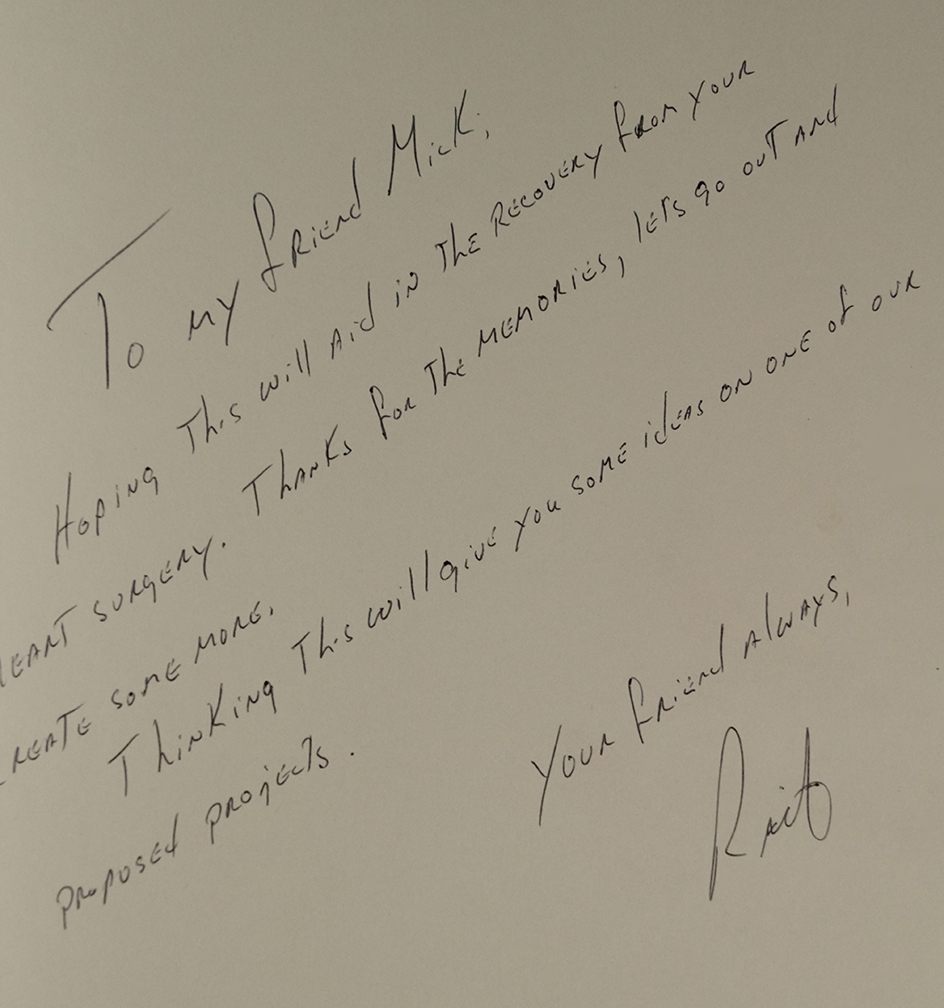 To my friend Mick;
Hoping this will aid in the recovery from your
heart surgery. Thanks for the memories, lets go out and
create some more.
Thinking this will give you some ideas on one of our
proposed projects.
Your friend always,